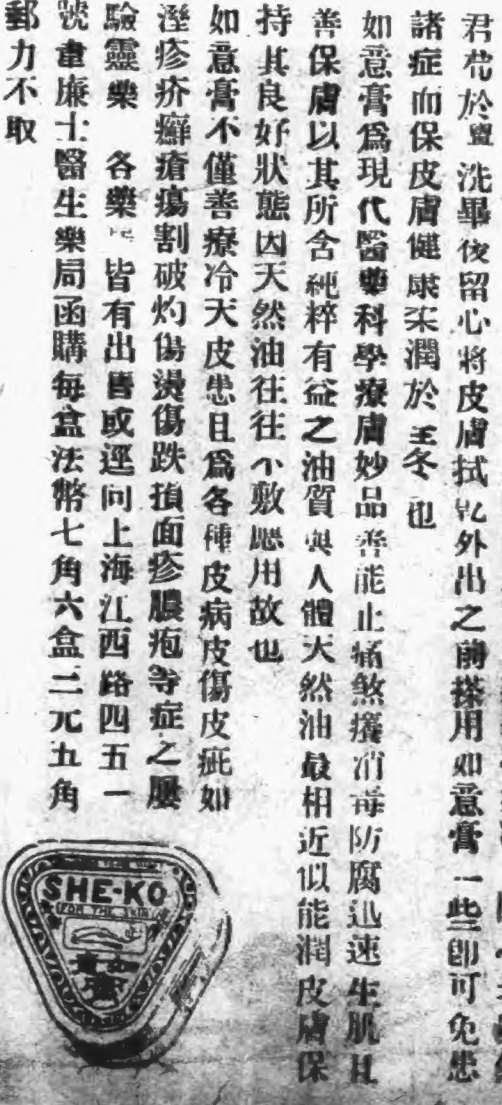 君苟於盥洗畢後留心將皮膚拭乾外出之前搽用如意膏一些即可免患
諸症而保皮膚健康柔潤於 冬 也
如意膏爲現代醫藥科學療膚妙品善能止痛煞癢消毒防腐迅速生肌且
善保膚以其所含純粹有益之油質與人體天然油最相近似能潤皮膚保
持其良好狀態因天然油往往不敷應用故也
如意膏不僅善療冷天皮患且爲各種皮病皮傷皮疵如
溼疹疥癬瘡瘍割破灼傷燙傷跌損面疹膿疱等症之屢
驗靈藥 各藥 皆有出售或逕向上海江西路四五一
號韋廉士醫生藥局函購每盒法幣七角六盒三元五角
郵力不取
SHE-KO
FOR THE SKIN
如意膏